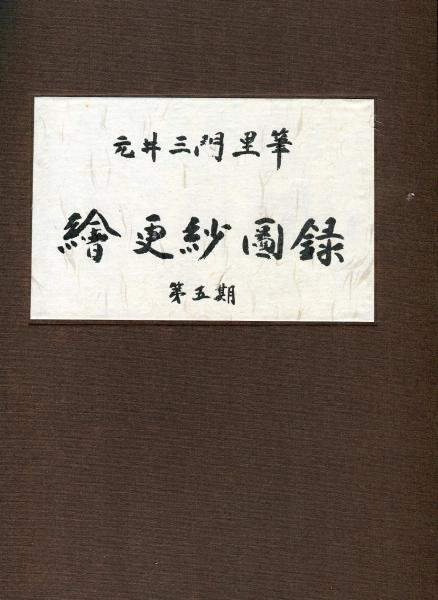 元井三門里筆
繪更紗圖録
第五期